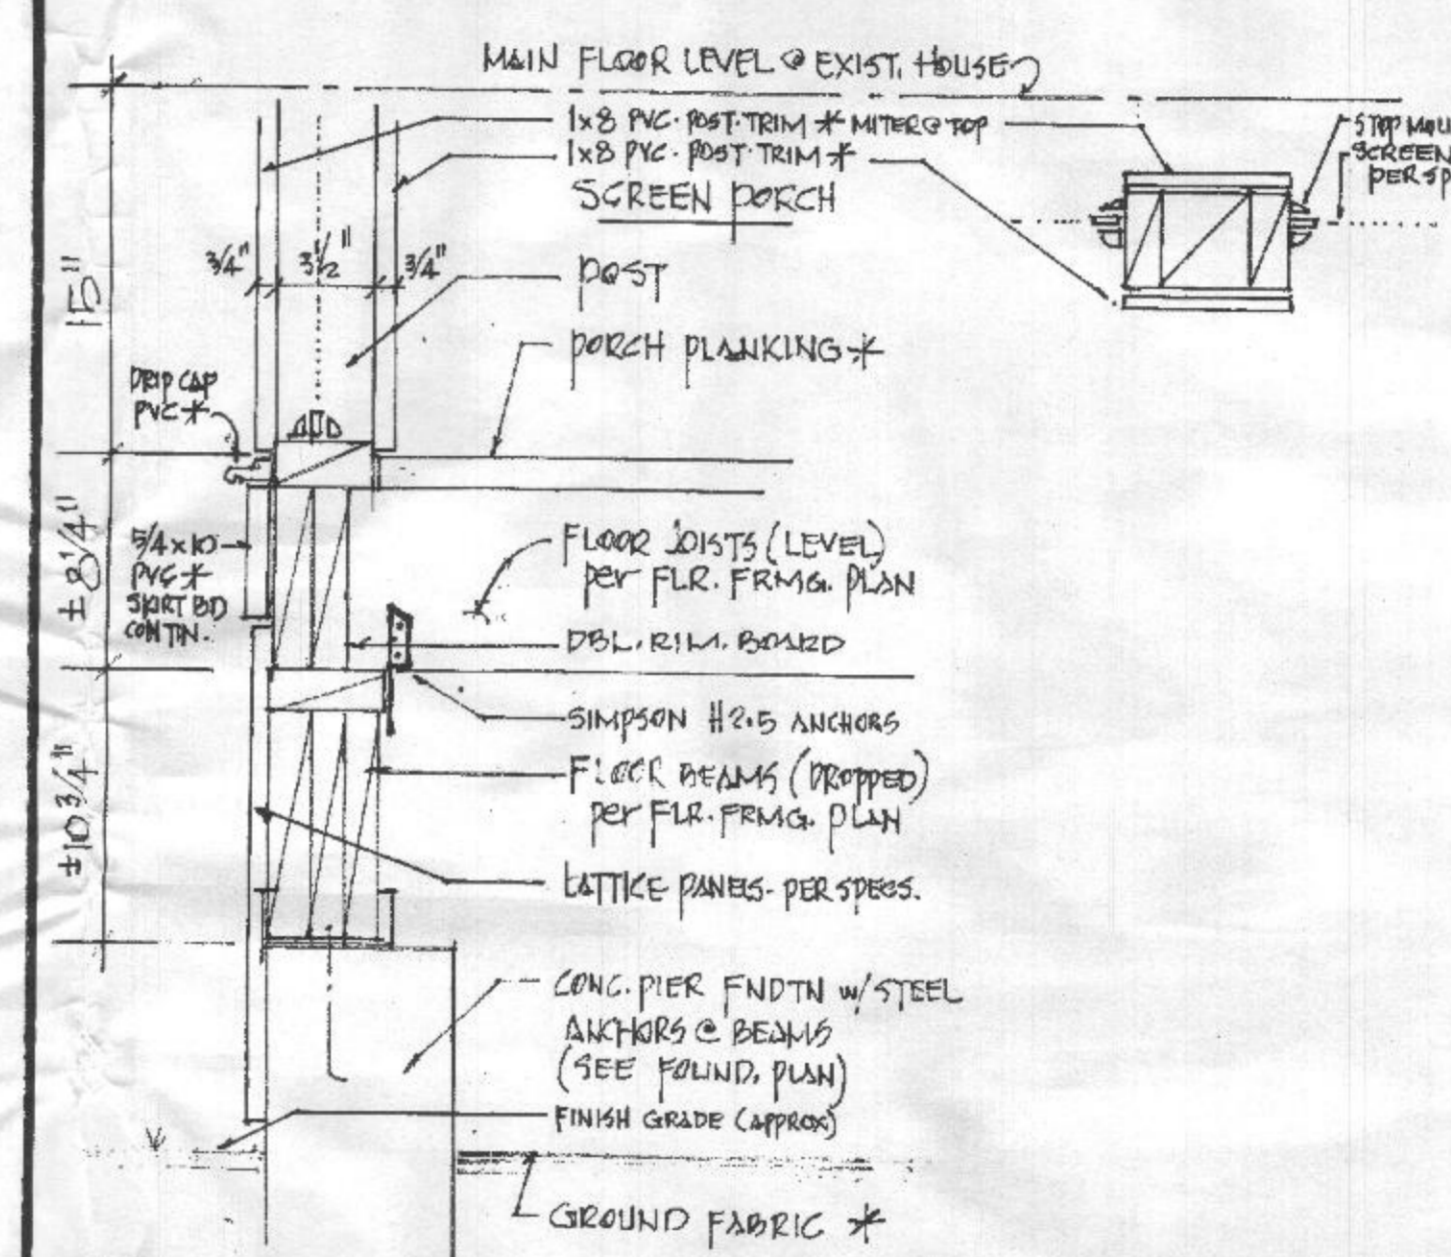 MAIN FLOOR LEVEL @ EXIST. HOUSE
1x8 PVC. POST. TRIM * MITER @ TOP
1x8 PVC. POST. TRIM *
SCREEN PORCH
STOP MOU
SCREEN
PER SP
3/4" 3 1/2" 3/4"
15"
POST
PORCH PLANKING *
DRIP CAP
PVC *
± 8 1/4"
5/4 x 10
PVC *
SKIRT BD
CONTIN.
FLOOR JOISTS (LEVEL)
per FLR. FRMG. PLAN
DBL. RIM. BOARD
SIMPSON H2.5 ANCHORS
± 10 3/4"
FLOOR BEAMS (DROPPED)
per FLR. FRMG. PLAN
LATTICE PANELS - PER SPECS.
CONC. PIER FNDTN w/ STEEL
ANCHORS @ BEAMS
(SEE FOUND. PLAN)
FINISH GRADE (APPROX)
GROUND FABRIC *